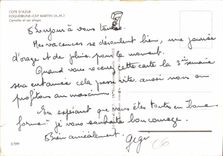 COTE D'AZUR
ROQUEBRUNE-CAP MARTIN (A.-M.)
Bonjour à vous toutes
Mes vacances se déroulent bien, une journée
d'orage et de pluie pour le moment.
Quand vous recevrez cette carte la 3ème semaine
sera entamée cela passe vite aussi nous en
profitons au maximum.
En espérant que vous êtes toutes en bonne
forme je vous souhaite bon courage.
Bien amicalement.